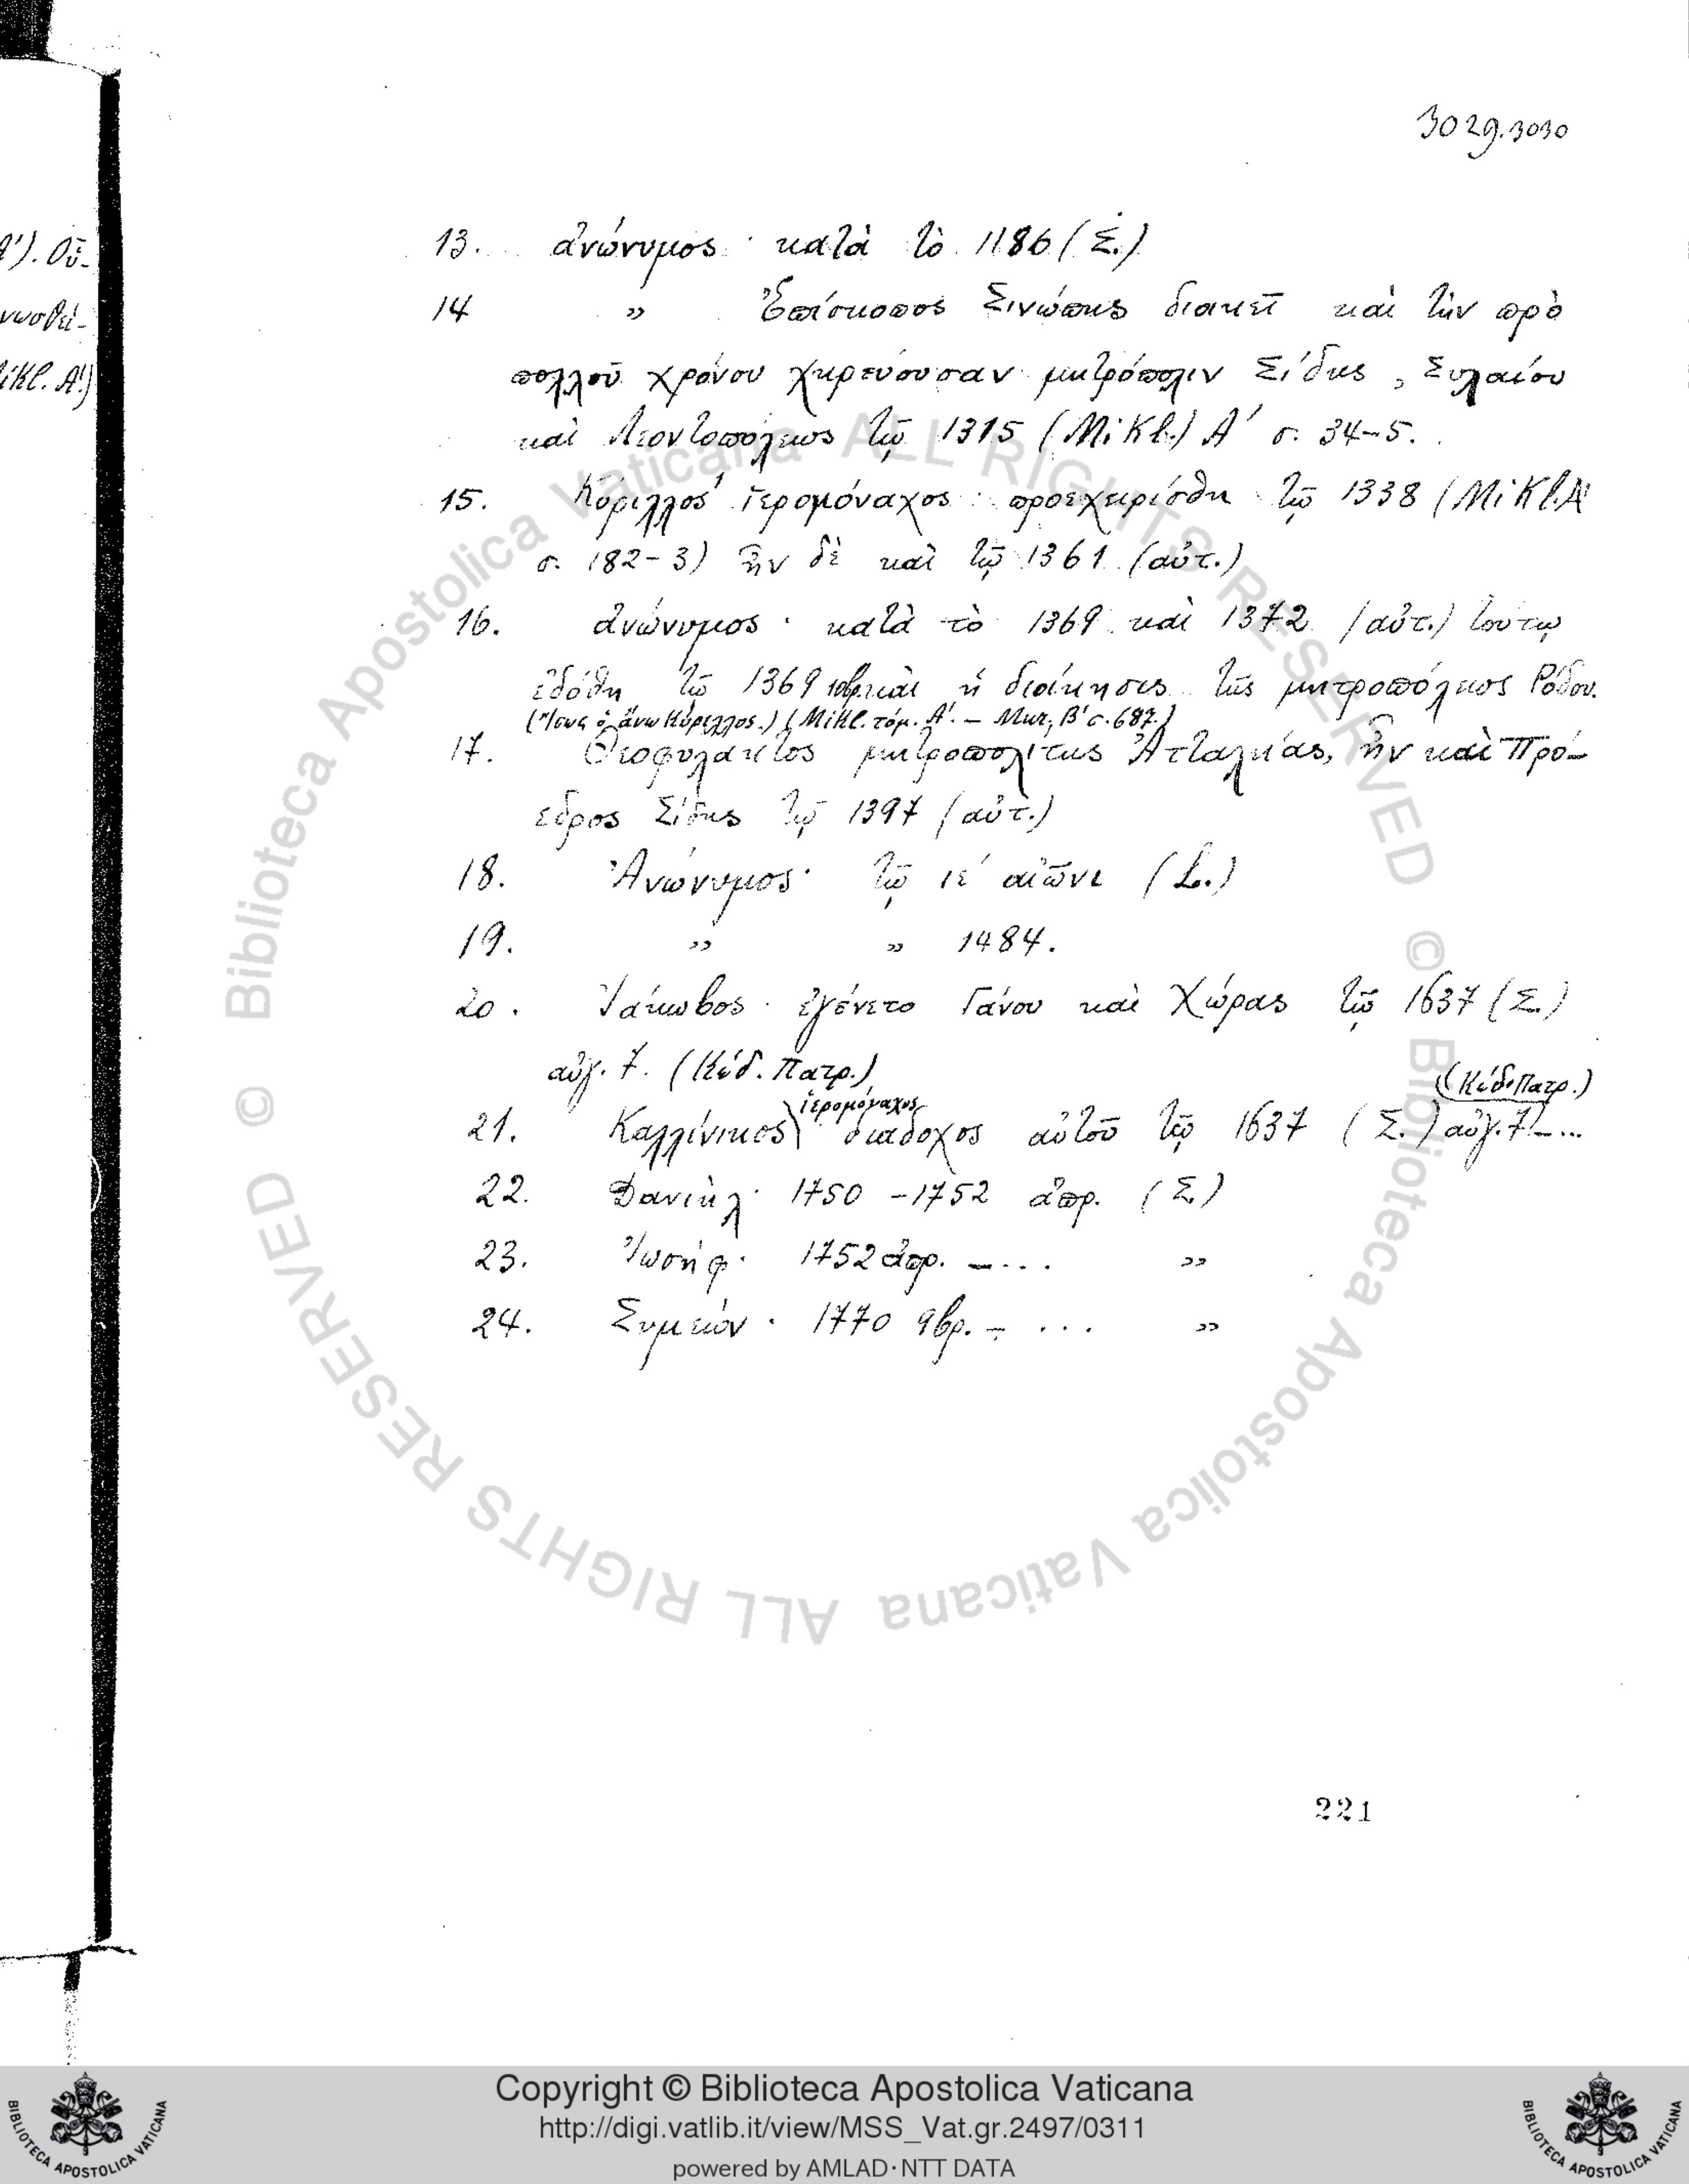 3029.3030
α'). Οὐ-
νωθεί-
ikl. Α')
13. ἀνώνυμος · κατὰ τὸ 1186 (Σ.)
14 » Ἐπίσκοπος Σινώπης διοικεῖ καὶ τὴν πρὸ
πολλοῦ χρόνου χηρεύουσαν μητρόπολιν Σίδης, Συλαίου
καὶ Λεοντοπόλεως τῷ 1315 (Mikl.) Α' σ. 34-5.
15. Κύριλλος ἱερομόναχος · προεχειρίσθη τῷ 1338 (Mikl. Α'
σ. 182-3) ἦν δὲ καὶ τῷ 1361 (αὐτ.)
16. ἀνώνυμος · κατὰ τὸ 1369 καὶ 1372 (αὐτ.) τούτῳ
ἐδόθη τῷ 1369 καὶ ἡ διοίκησις τῆς μητροπόλεως Ῥόδου.
(Ἴσως ὁ ἄνω Κύριλλος.) (Mikl. τόμ. Α'. — Μητ. Β' σ. 687.)
17. Θεοφύλακτος μητροπολίτης Ἀτταλείας, ἦν καὶ Πρό-
εδρος Σίδης τῷ 1397 (αὐτ.)
18. Ἀνώνυμος · τῷ ιε' αἰῶνι (L.)
19. » » 1484.
20. Ἰάκωβος · ἐγένετο Γάνου καὶ Χώρας τῷ 1637 (Σ.)
αὐγ. 7. (Κώδ. Πατρ.)
21. Καλλίνικος ἱερομόναχος διάδοχος αὐτοῦ τῷ 1637 (Σ.) αὐγ. 7 — ... (Κώδ. Πατρ.)
22. Δανιὴλ · 1750 - 1752 ἀπρ. (Σ.)
23. Ἰωσήφ · 1752 ἀπρ. — ... »
24. Συμεών · 1770 9βρ. — ... »
221
© Biblioteca Apostolica Vaticana ALL RIGHTS RESERVED © Biblioteca Apostolica Vaticana ALL RIGHTS RESERVED
Copyright © Biblioteca Apostolica Vaticana
http://digi.vatlib.it/view/MSS_Vat.gr.2497/0311
powered by AMLAD·NTT DATA
BIBLIOTECA APOSTOLICA VATICANA
BIBLIOTECA APOSTOLICA VATICANA